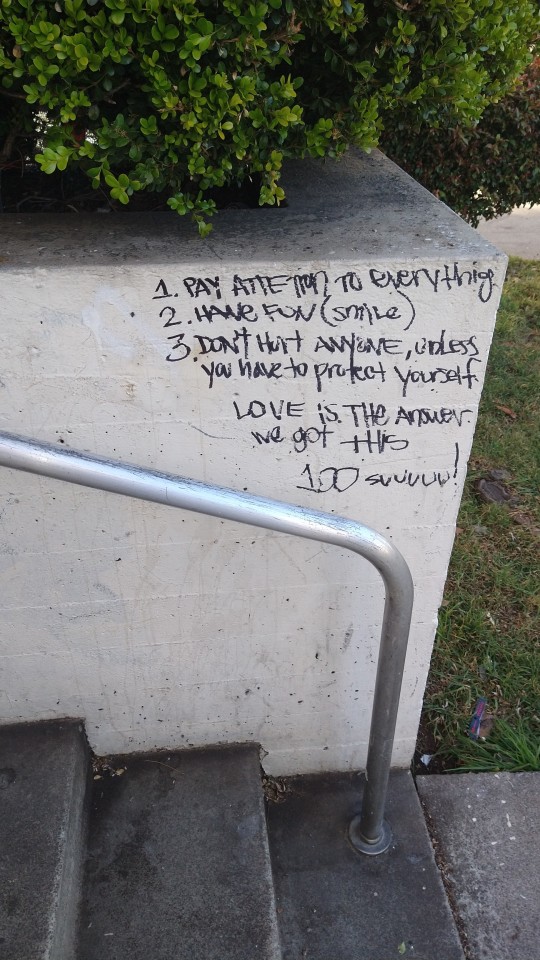 1. PAY ATTETION TO everythig
2. HAVE FUN (smile)
3. DON'T HURT ANYONE, unless
you have to protect yourself
LOVE is THE Answer
we got THIS
100 suuuuu!